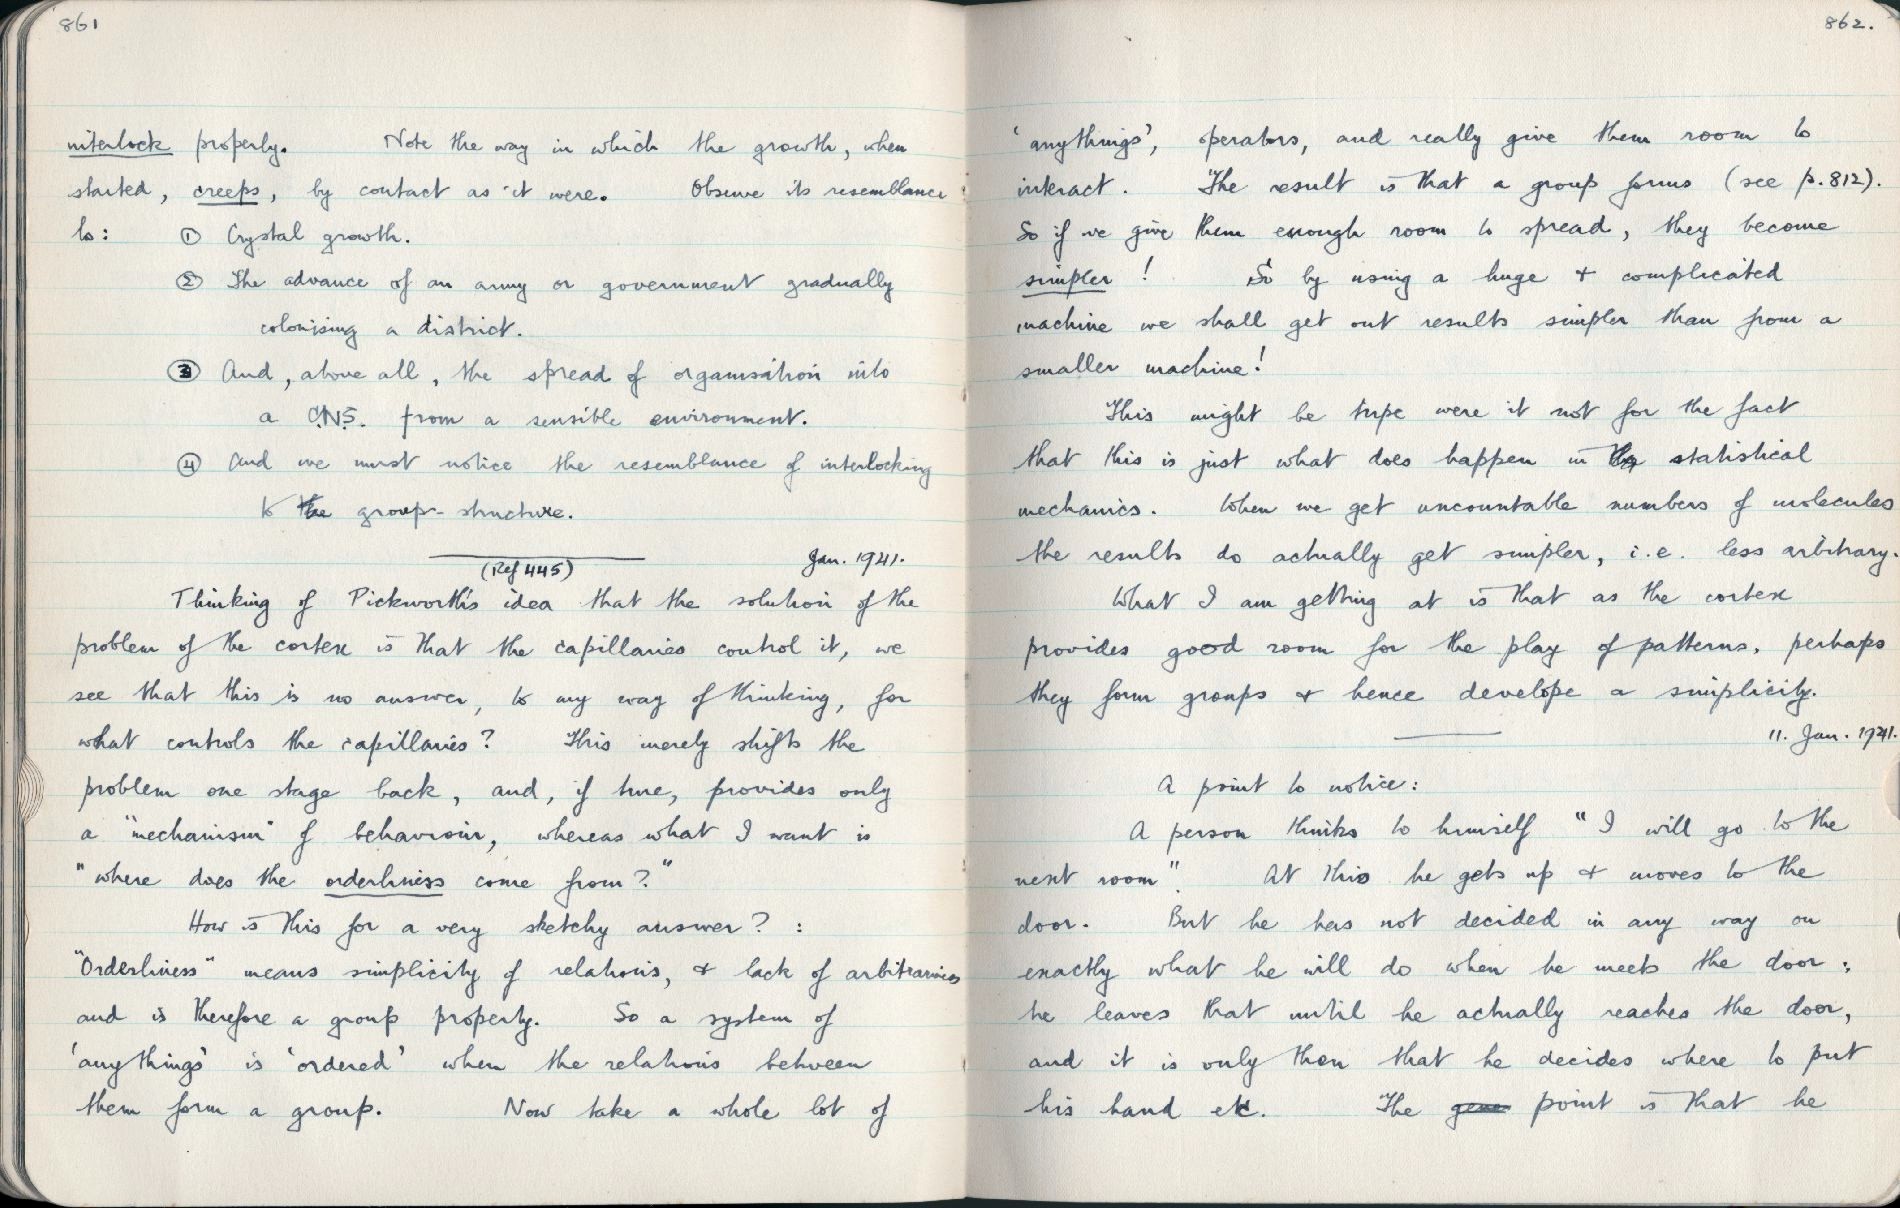 861
interlock properly. Note the way in which the growth, when
started, creeps, by contact as it were. Observe its resemblance
to: ① Crystal growth.
② The advance of an army or government gradually
colonising a district.
③ And, above all, the spread of organisation into
a C.N.S. from a sensible environment.
④ And we must notice the resemblance of interlocking
to the group-structure.
Jan. 1941.
(Ref 445)
Thinking of Pickworth's idea that the solution of the
problem of the cortex is that the capillaries control it, we
see that this is no answer, to my way of thinking, for
what controls the capillaries? This merely shifts the
problem one stage back, and, if true, provides only
a "mechanism" of behaviour, whereas what I want is
"where does the orderliness come from?"
How is this for a very sketchy answer? :
"Orderliness" means simplicity of relations, & lack of arbitrariness
and is therefore a group property. So a system of
'anythings' is 'ordered' when the relations between
them form a group. Now take a whole lot of
862.
'anythings', operators, and really give them room to
interact. The result is that a group forms (see p. 812).
So if we give them enough room to spread, they become
simpler! So by using a huge & complicated
machine we shall get out results simpler than from a
smaller machine!
This might be tripe were it not for the fact
that this is just what does happen in statistical
mechanics. When we get uncountable numbers of molecules
the results do actually get simpler, i.e. less arbitrary.
What I am getting at is that as the cortex
provides good room for the play of patterns, perhaps
they form groups & hence develope a simplicity.
11. Jan. 1941.
A point to notice:
A person thinks to himself "I will go to the
next room". At this he gets up & moves to the
door. But he has not decided in any way on
exactly what he will do when he meets the door;
he leaves that until he actually reaches the door,
and it is only then that he decides where to put
his hand etc. The point is that he